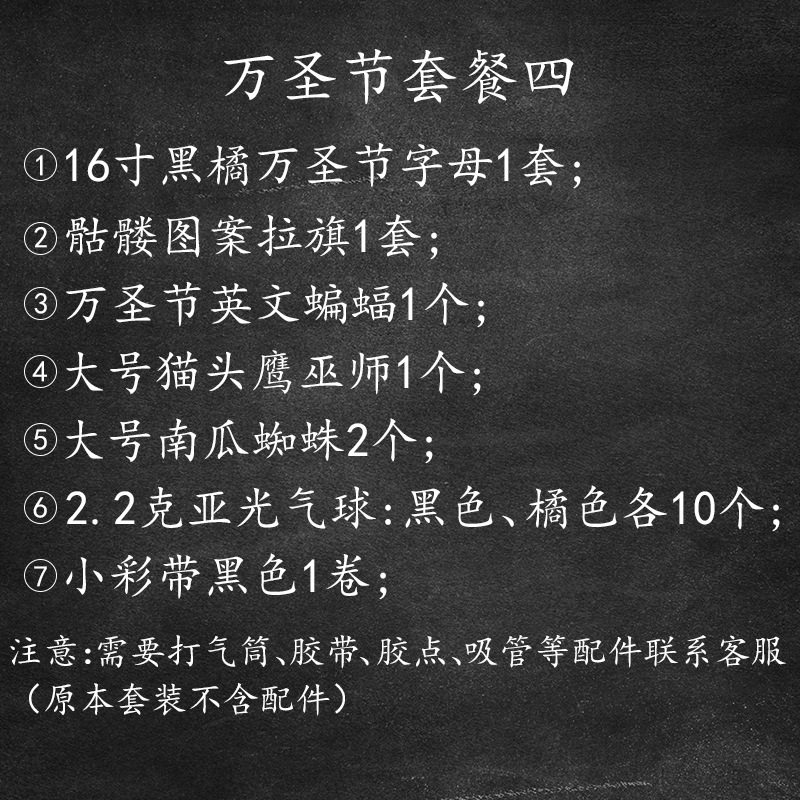 万圣节套餐四
①16寸黑橘万圣节字母1套；
②骷髅图案拉旗1套；
③万圣节英文蝙蝠1个；
④大号猫头鹰巫师1个；
⑤大号南瓜蜘蛛2个；
⑥2.2克亚光气球:黑色、橘色各10个；
⑦小彩带黑色1卷；
注意:需要打气筒、胶带、胶点、吸管等配件联系客服
（原本套装不含配件）